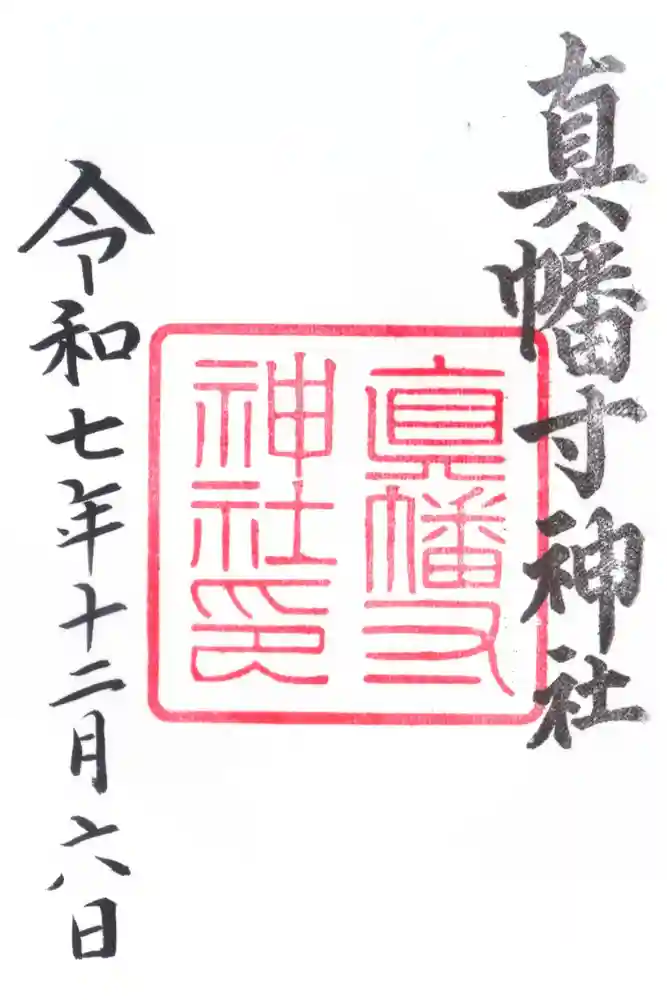 真幡寸神社
真幡寸
神社印
令和七年十二月六日